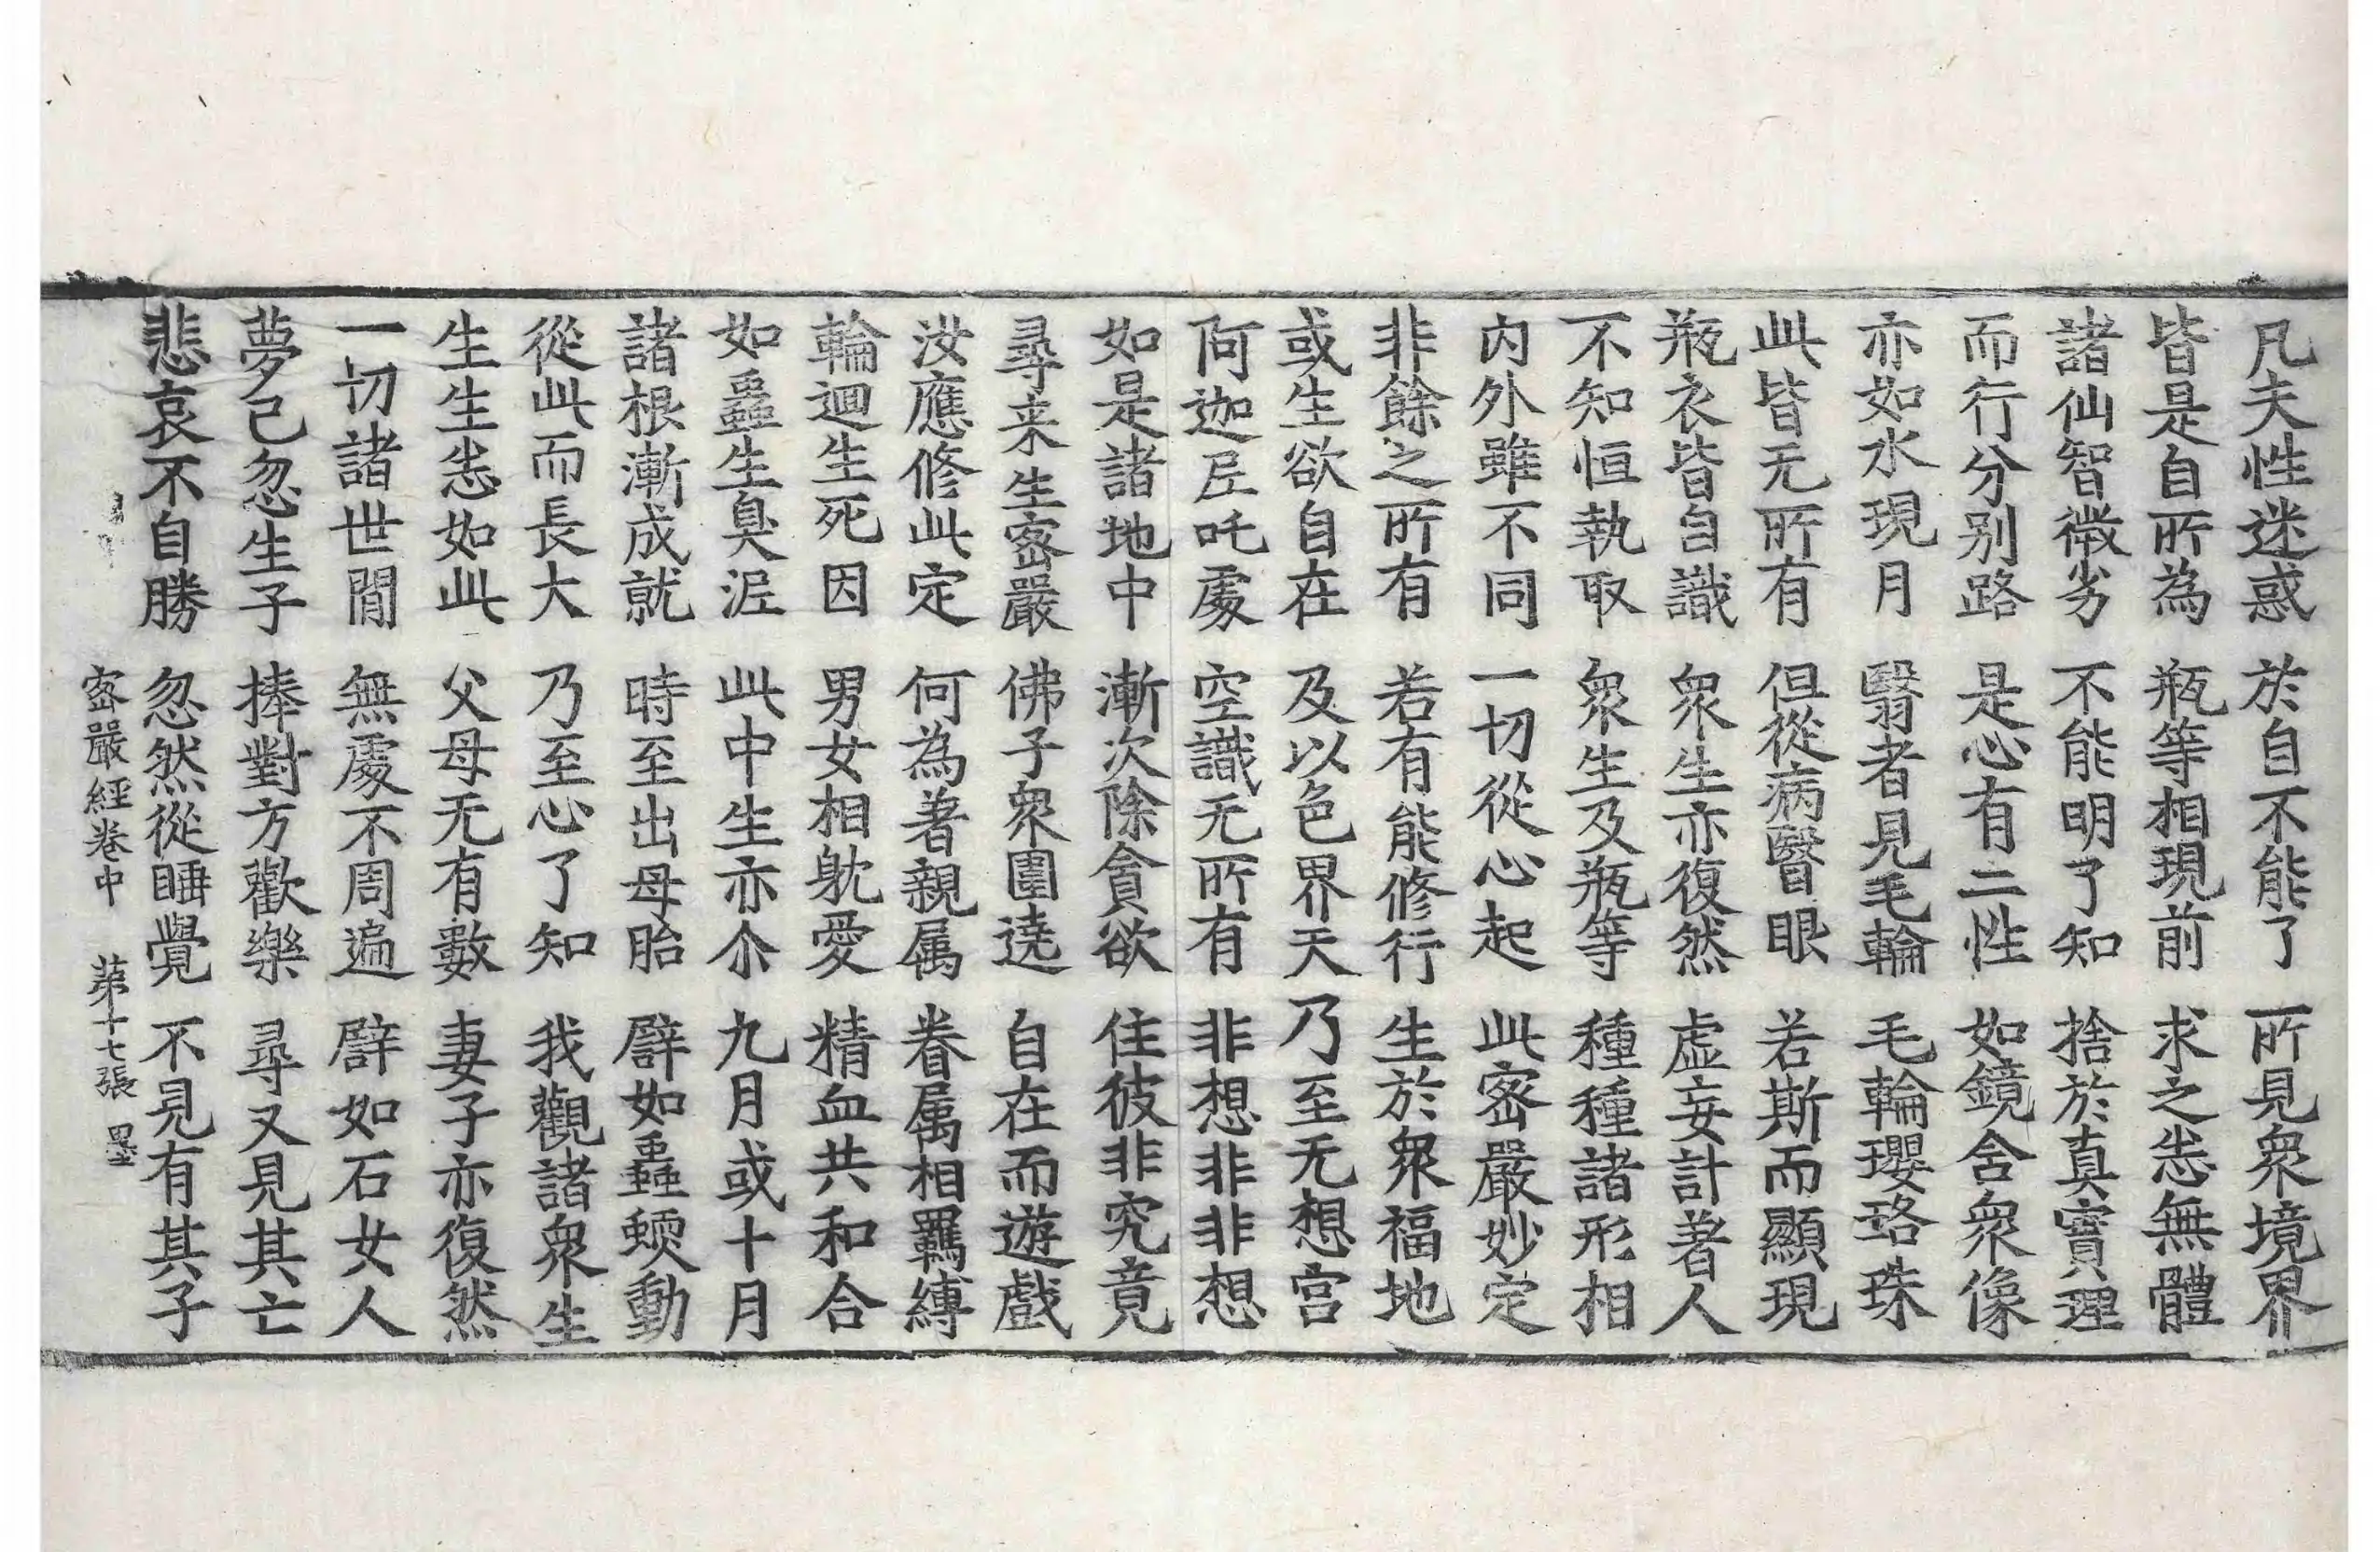 凡夫性迷惑 於自不能了 所見衆境界
皆是自所為 瓶等相現前 求之悉無體
諸仙智微劣 不能明了知 捨於真實理
而行分别路 是心有二性 如鏡含衆像
亦如水現月 翳者見毛輪 毛輪瓔珞珠
此皆无所有 但從病瞖眼 若斯而顯現
瓶衣皆自識 衆生亦復然 虛妄計著人
不知恒執取 衆生及瓶等 種種諸形相
内外雖不同 一切從心起 此密嚴妙定
非餘之所有 若有能修行 生於衆福地
或生欲自在 及以色界天 乃至无想宫
阿迦尼吒處 空識无所有 非想非非想
如是諸地中 漸次除貪欲 住彼非究竟
尋来生密嚴 佛子衆圍遶 自在而遊戲
汝應修此定 何為著親属 眷属相羈縛
輪迴生死因 男女相躭愛 精血共和合
如蟲生臭泥 此中生亦尒 九月或十月
諸根漸成就 時至出母胎 譬如蟲蝡動
從此而長大 乃至心了知 我觀諸衆生
生生悉如此 父母无有數 妻子亦復然
一切諸世閒 無處不周遍 譬如石女人
夢己忽生子 捧對方歡樂 尋又見其亡
悲哀不自勝 忽然從睡覺 不見有其子
密嚴經卷中 苐十七張 墨